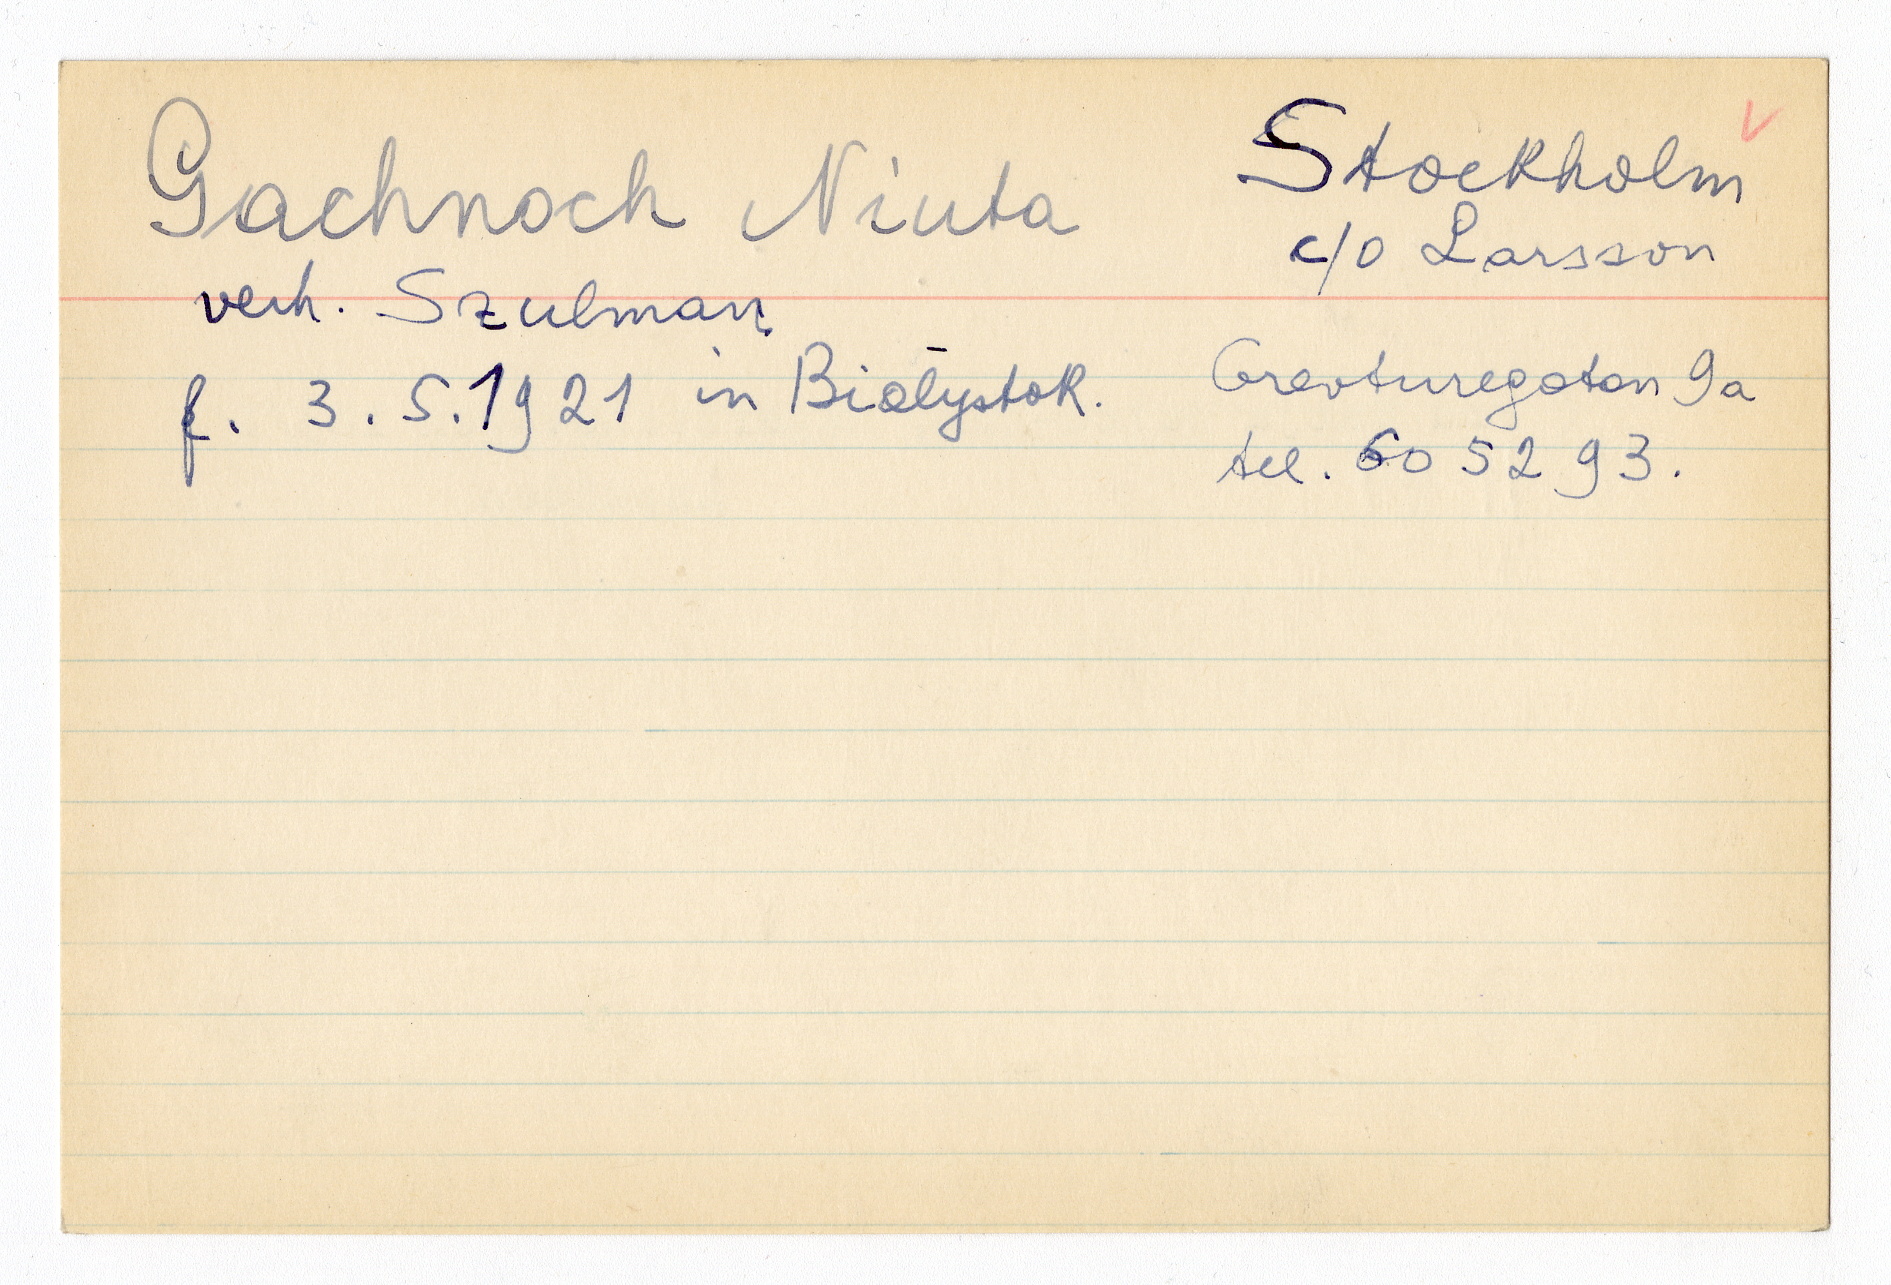 Gachnoch Niuta
verh. Szulman
f. 3.5.1921 in Białystok.
Stockholm
c/o Larsson
Grevturegatan 9a
tel. 60 52 93.